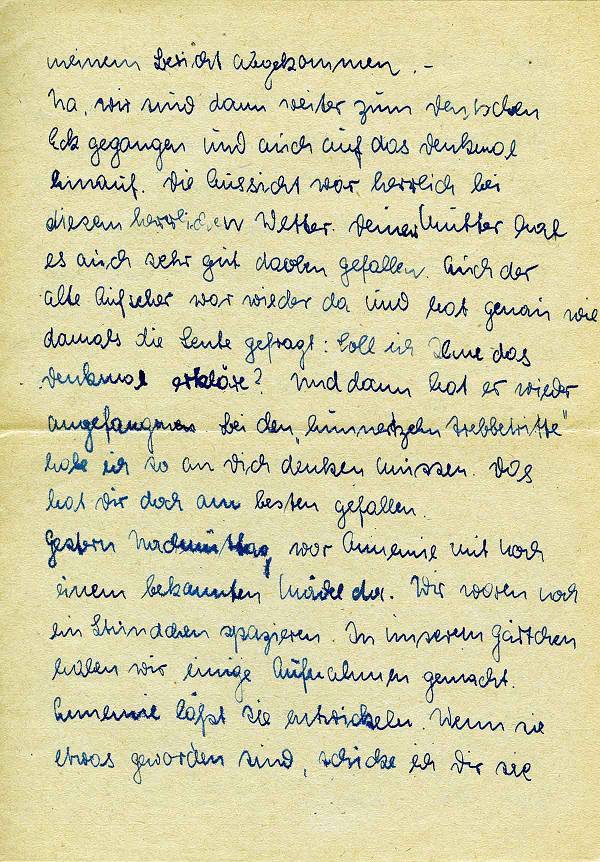 meinem Bericht abgekommen. –
Na, wir sind dann weiter zum Deutschen
Eck gegangen und auch auf das Denkmal
hinauf. Die Aussicht war herrlich bei
diesem herrlichen Wetter. Deiner Mutter hat
es auch sehr gut daoben gefallen. Auch der
alte Aufseher war wieder da und hat genau wie
damals die Leute gefragt: Soll ich Ihne das
Denkmal erkläre? Und dann hat er wieder
angefangen. Bei den „hunnertzehn Trebbetritte"
habe ich so an Dich denken müssen. Das
hat Dir doch am besten gefallen.
Gestern Nachmittag war Annemie mit noch
einem bekannten Mädel da. Wir waren noch
ein Stündchen spazieren. In unserem Gärtchen
haben wir einige Aufnahmen gemacht.
Annemie läßt sie entwickeln. Wenn sie
etwas geworden sind, schicke ich Dir sie